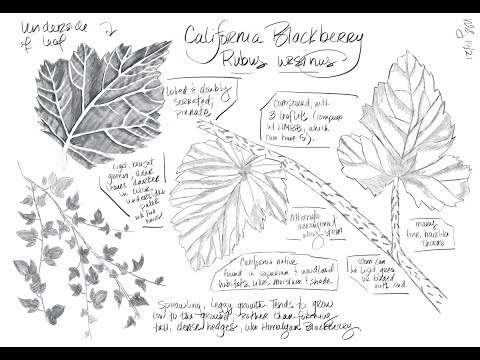 Underside
of leaf
California Blackberry
Rubus ursinus
12/11/2021
lobed & doubly
serrated,
pinnate
compound, with
3 leaflets (compare
w/ HMBB, which
can have 5).
light, bright
green, older
leaves darker
in color,
underside
paler
Alternate
arrangement
along stem
many
fine, hairlike
thorns
California native
found in riparian & woodland
habitats, likes moisture & shade.
Stem can
be light green
or tinged
with red
Sprawling, leggy growth tends to grow
low to the ground, rather than forming
tall, dense hedges, like Himalayan Blackberry